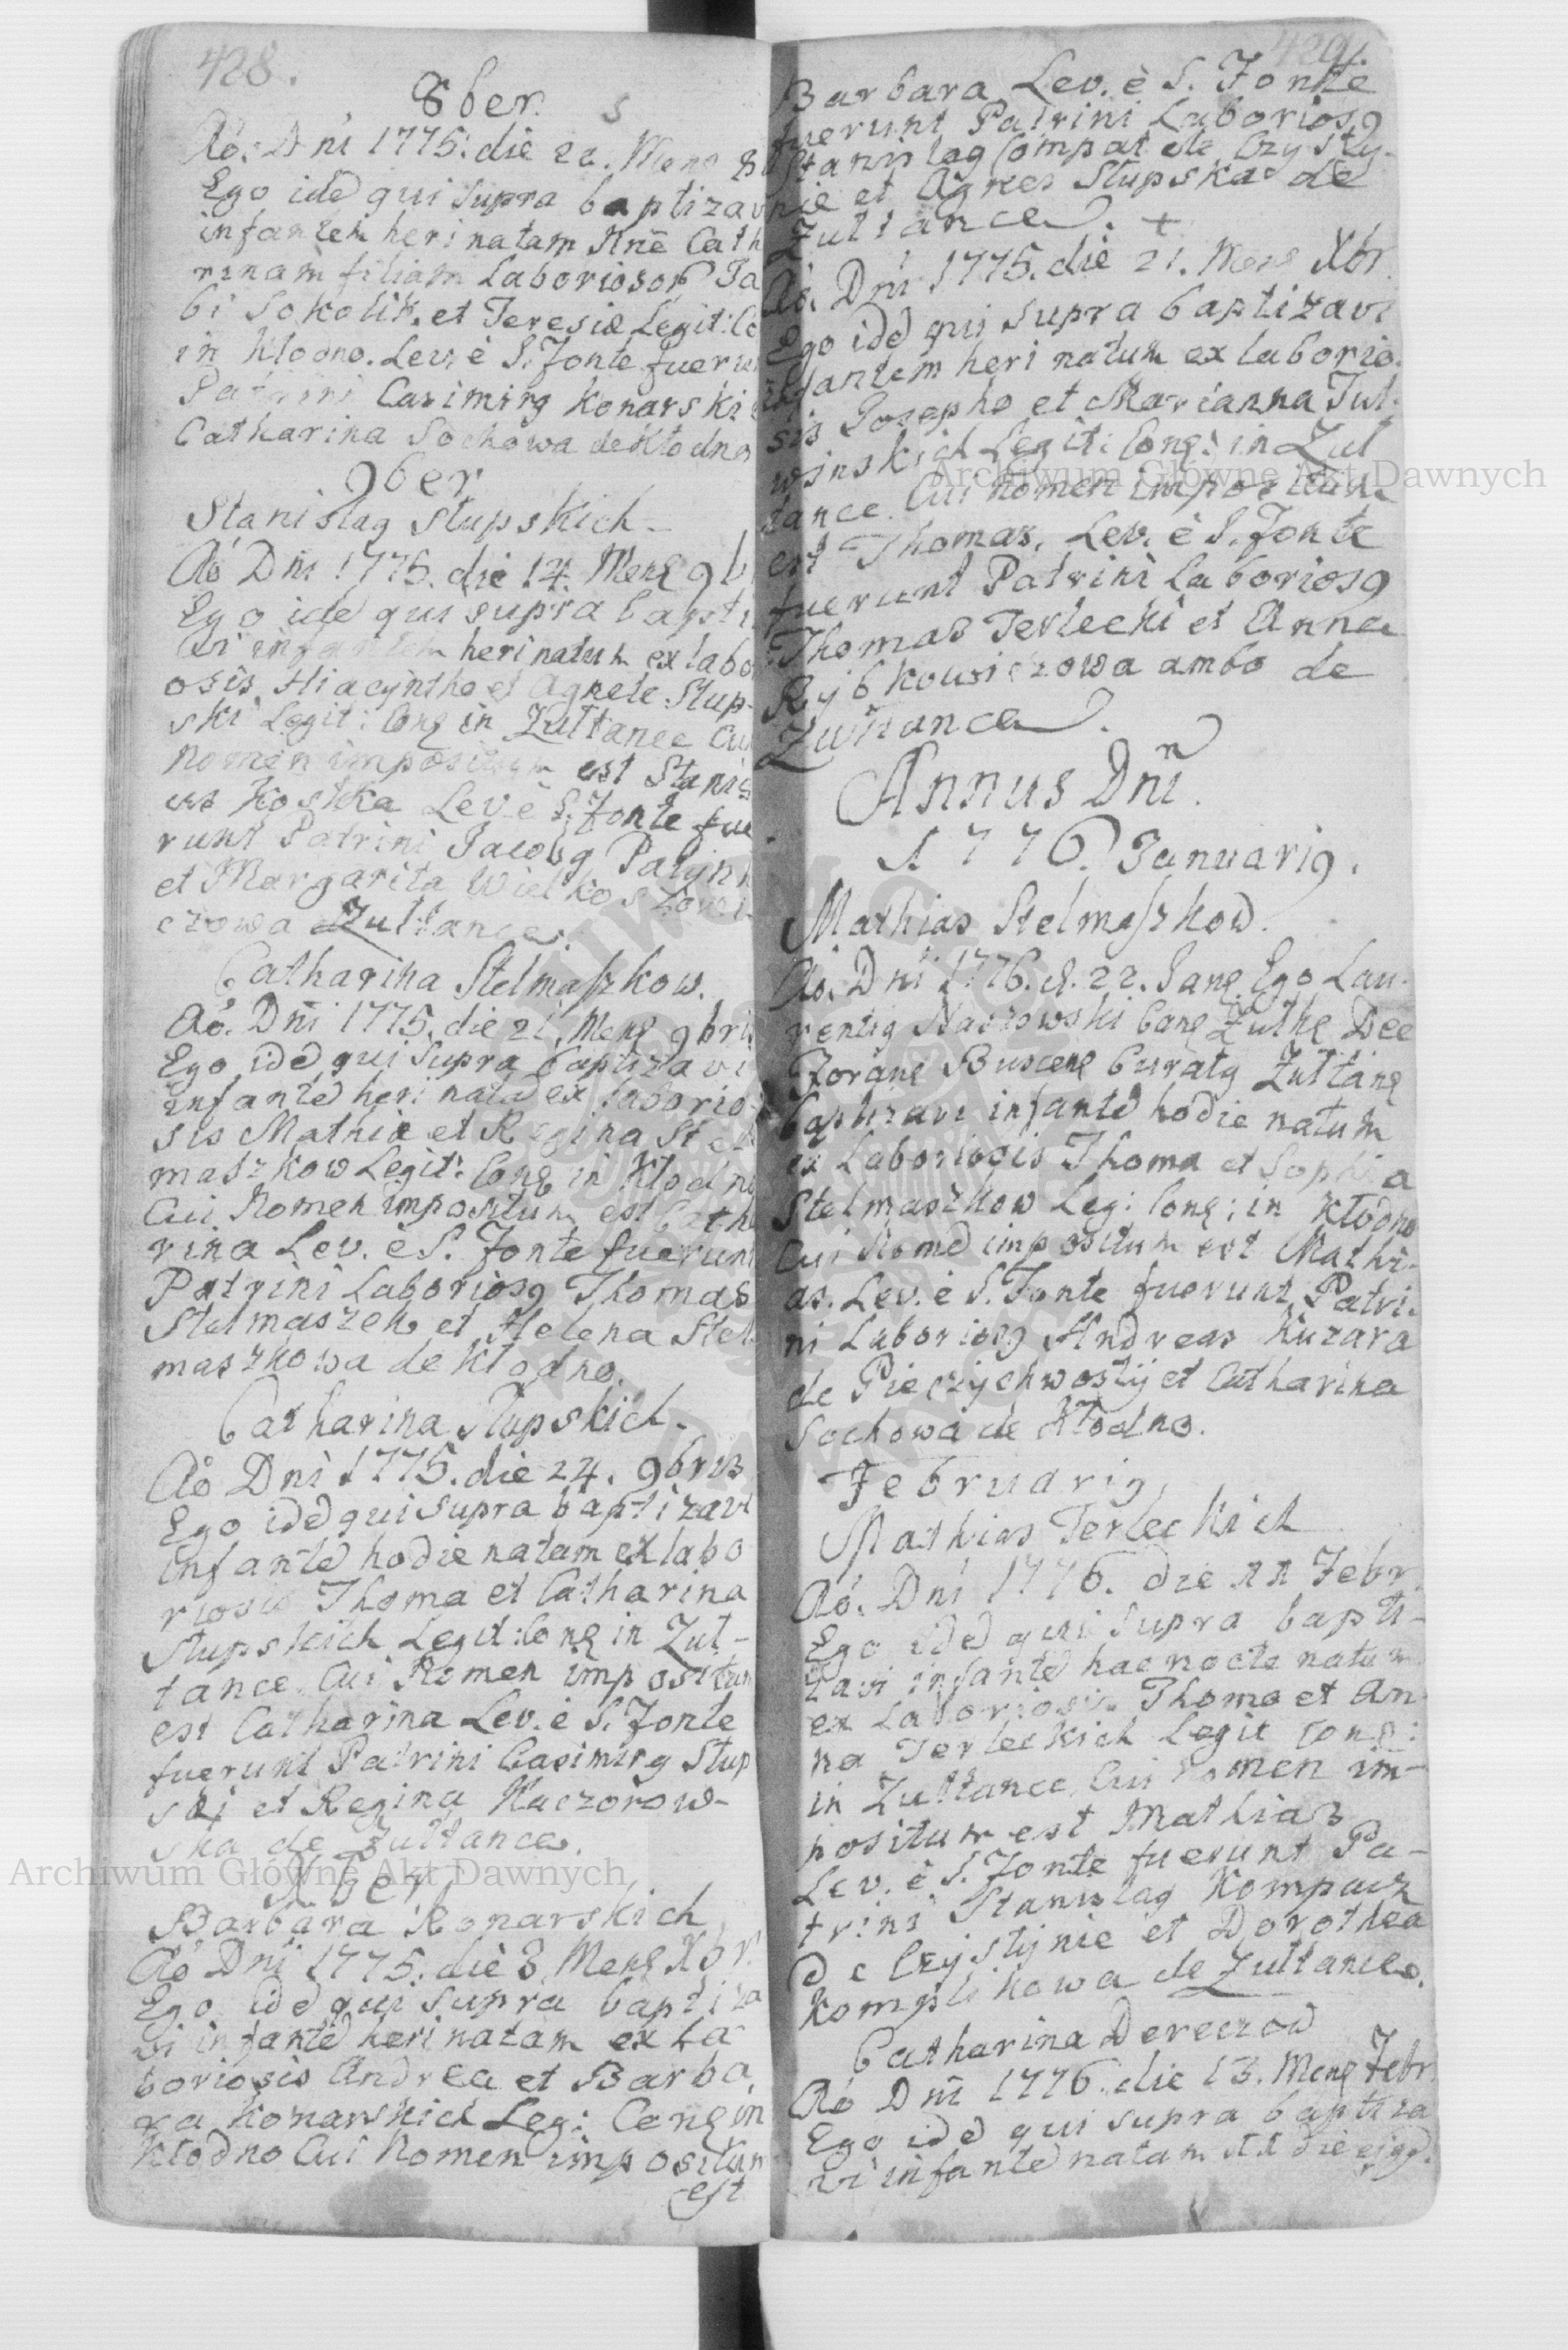 428.
8ber.
Aõ. Dñi 1775. die 20. Mens 8b
Ego idē qui supra baptizav
infantem heri natam Nñe Cath
rinam filiam Laboriosor Ja
bi Sokolik. et Teresiæ Legit: Co
in Kłodno. Lev. è S. Fonte fuerun
Patrini Casimirg Konarski
Catharina Sochowa de Kłodno
9ber
Stanislag Słupskich
Aõ Dñi 1775. die 14. Mens 9b
Ego idē qui supra bapti
vi infantem heri natum ex labo
osis Hiacÿntho et Agnete Słup-
ski Legit: Cong in Zułtance Cui
Nomen impositum est Stanis
us Kostka Lev. è S. Fonte fue
runt Patrini Jacobg
et Margarita
czowa Zułtance.
Catharina Stelmaszkow.
Aõ. Dñi 1775. die 21. Mens 9bris
Ego idē qui supra baptizavi
infantē heri natā ex laborio-
sis Mathia et Regina Stel
maszkow Legit: Cong in Kłodno
Cui Nomen impositum est Cath
rina Lev. è S. Fonte fuerunt
Patrini Laboriosg Thomas
Stelmaszek et Helena Stel
maszkowa de Kłodno.
Catharina Słupskich
Aõ Dñi 1775. die 24. 9bris
Ego idē qui supra baptizavi
infantē hodie natam ex labo
riosis Thoma et Catharina
Słupskich Legit: Cong in Zuł-
tance. Cui Nomen impositum
est Catharina Lev. è S. Fonte
fuerunt Patrini Casimirg Słup
ski et Regina Kaczorow-
ska de Zułtance.
Xber
Barbara Konarskich
Aõ Dñi 1775. die 3. Mens Xbr.
Ego idē qui supra baptiza
vi infantē heri natam ex La
boriosis Andrea et Barba
ra Konarskich Leg: Cong in
Kłodno Cui Nomen impositum
est
429.
Barbara Lev. è S. Fonte
fuerunt Patrini Laboriosg
Stanislag Compat de Czysty-
nie et Agnes Słupska de
Zułtance. +
Aõ. Dñi 1775. die 21. Mens Xbr.
Ego idē qui supra baptizavi
infantem heri natum ex laborio-
sis Josepho et Marianna Jul-
winskich Legit: Cong: in Zuł
tance. Cui Nomen impositum
est Thomas. Lev. è S. Fonte
fuerunt Patrini Laboriosg
Thomas Terlecki et Anna
Rÿbkowiczowa ambo de
Zułtance.
Annus Dñi.
1776. Januarig.
Mathias Stelmaszkow.
Aõ. Dñi 1776. d. 22. Jang Ego Lau-
rentig Cang Dec
Forang Buscens Curatg Zułtang
baptizavi infantē hodie natum
ex Laboriosis Thoma et Sophia
Stelmaszkow Leg: Cong: in Kłodno
Cui Nomē impositum est Mathi-
as. Lev. è S. Fonte fuerunt Patri-
ni Laboriosg Andreas Kuzara
de Pieczÿchwostÿ et Catharina
Sochowa de Kłodno.
Februarig
Mathias Terleckich
Aõ. Dñi 1776. die 11 Febr.
Ego idē qui supra bapti-
zavi infantē hac nocte natum
ex Laboriosis Thoma et An
na Terleckich Legit Cong:
in Zułtance, Cui Nomen im-
positum est Mathias
Lev. è S. Fonte fuerunt Pa-
trini Stanislag Kompacz
de Czÿstÿnie et Dorothea
Komplikowa de Zułtance.
Catharina Dereczow
Aõ Dñi 1776. die 13. Mens Febr.
Ego idē qui supra baptiza
vi infantē natam 11 die ejgd.
Archiwum Główne Akt Dawnych
Archiwum Główne Akt Dawnych